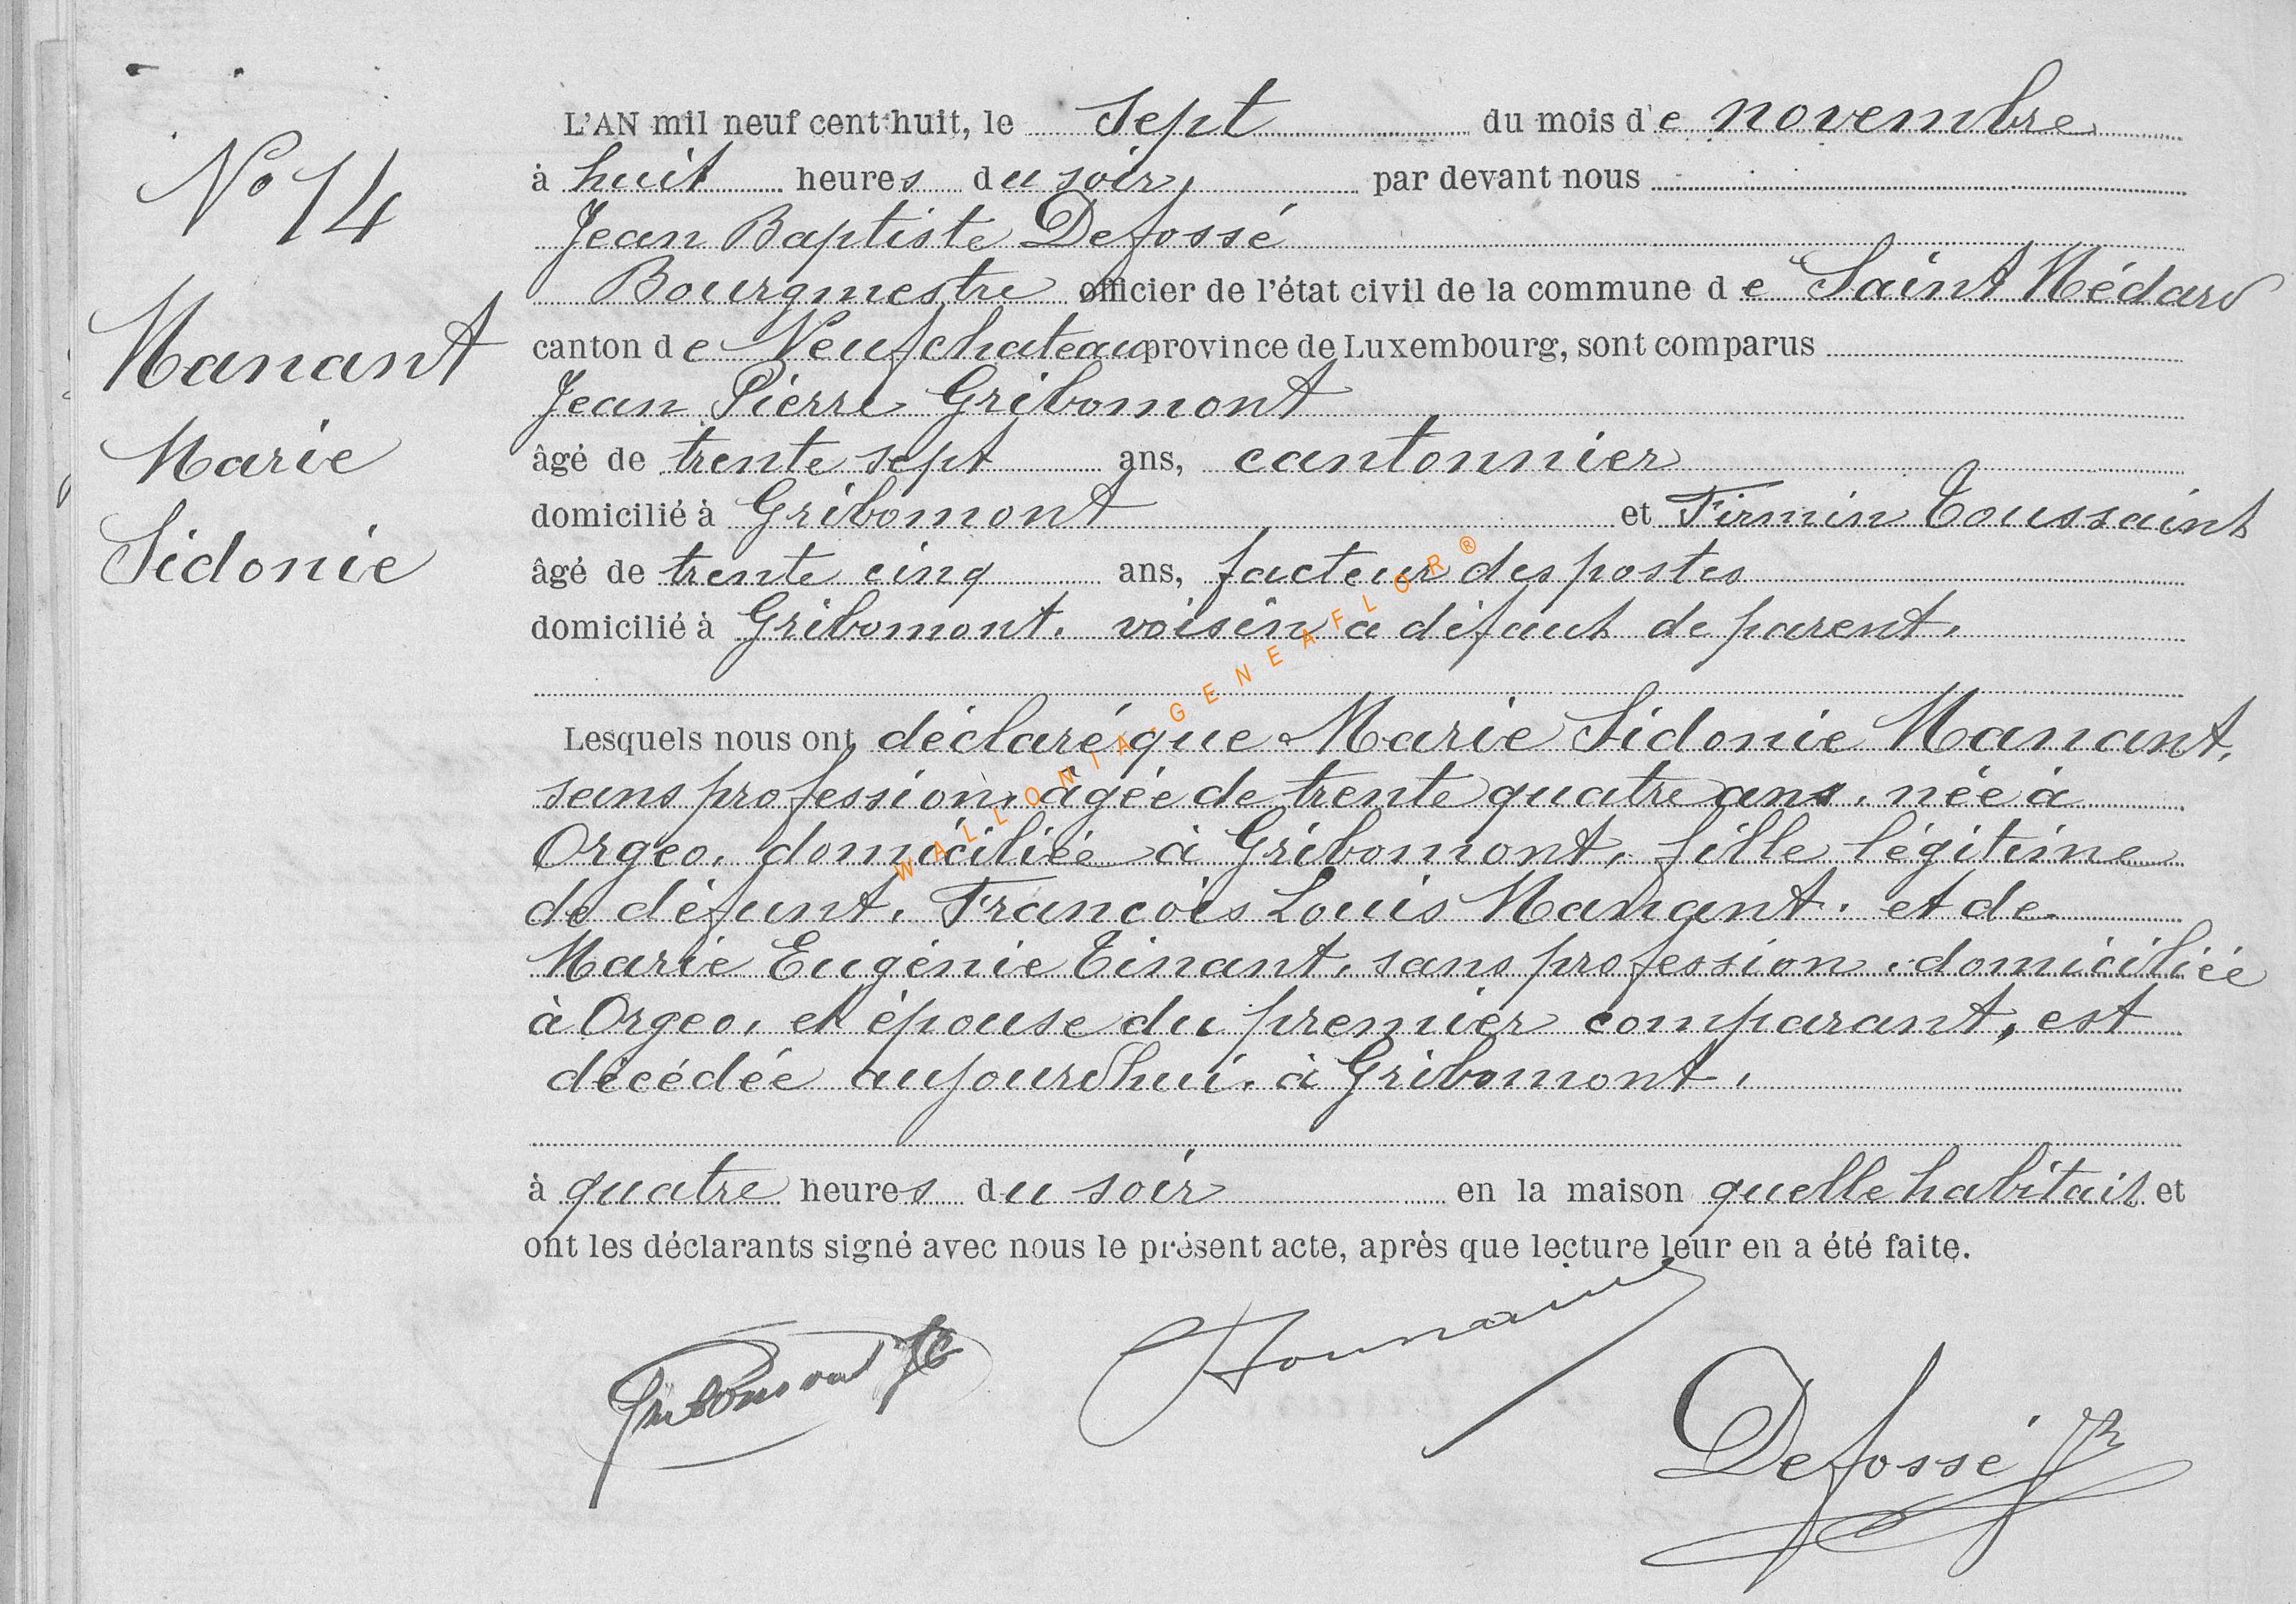 No 14
Manant
Marie
Sidonie
L'AN mil neuf cent huit, le sept du mois de novembre
à huit heures du soir, par devant nous
Jean Baptiste Defossé
Bourgmestre officier de l'état civil de la commune de Saint Médard
canton de Neufchateau province de Luxembourg, sont comparus
Jean Pierre Gribomont
âgé de trente sept ans, cantonnier
domicilié à Gribomont et Firmin Toussaint
âgé de trente cinq ans, facteur des postes
domicilié à Gribomont. voisin a défaut de parent.
Lesquels nous ont déclaré que Marie Sidonie Manant,
sans profession, âgée de trente quatre ans, née à
Orgeo, domiciliée à Gribomont, fille légitime
de défunt, François Louis Manant, et de
Marie Eugénie Tinant, sans profession, domiciliée
à Orgeo, et épouse du premier comparant, est
décédée aujourdhui, à Gribomont,
à quatre heures du soir en la maison quelle habitait et
ont les déclarants signé avec nous le présent acte, après que lecture leur en a été faite.
Gribomont JP
Toussaint
Defossé JB
WALLONIA-GENEAFLOR®